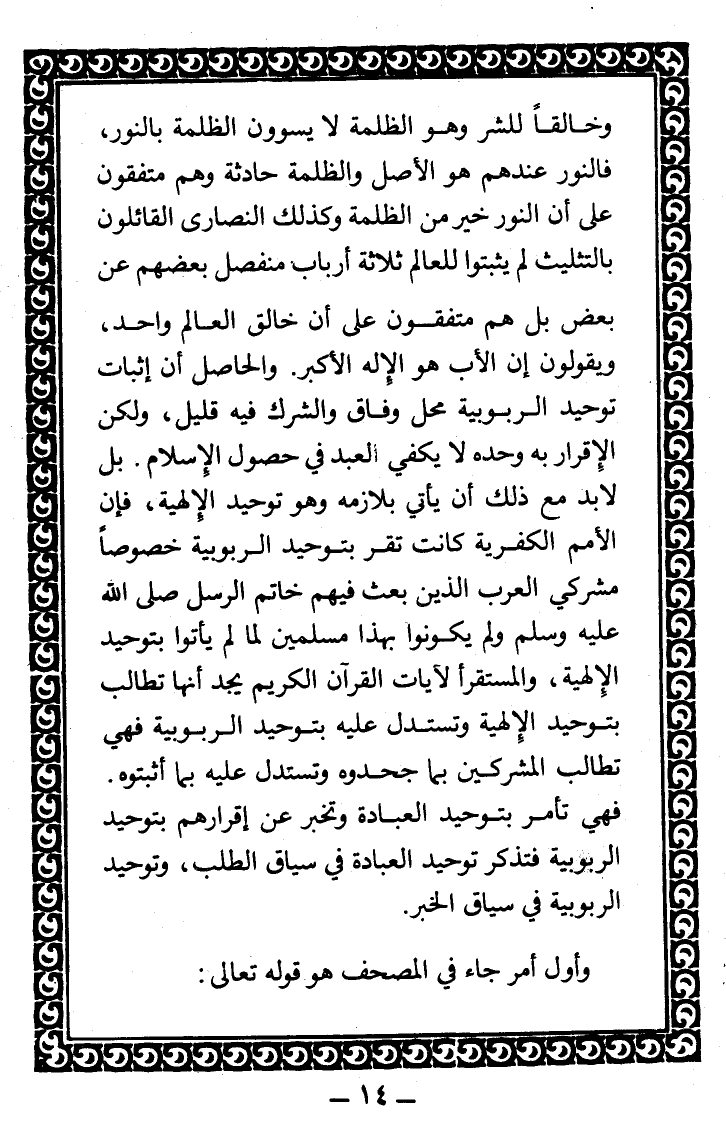 وخالقاً للشر وهو الظلمة لا يسوون الظلمة بالنور،
فالنور عندهم هو الأصل والظلمة حادثة وهم متفقون
على أن النور خير من الظلمة وكذلك النصارى القائلون
بالتثليث لم يثبتوا للعالم ثلاثة أرباب منفصل بعضهم عن
بعض بل هم متفقون على أن خالق العالم واحد،
ويقولون إن الأب هو الإله الأكبر. والحاصل أن إثبات
توحيد الربوبية محل وفاق والشرك فيه قليل، ولكن
الإقرار به وحده لا يكفي العبد في حصول الإسلام. بل
لابد مع ذلك أن يأتي بلازمه وهو توحيد الإلهية، فإن
الأمم الكفرية كانت تقر بتوحيد الربوبية خصوصاً
مشركي العرب الذين بعث فيهم خاتم الرسل صلى الله
عليه وسلم ولم يكونوا بهذا مسلمين لما لم يأتوا بتوحيد
الإلهية، والمستقرأ لآيات القرآن الكريم يجد أنها تطالب
بتوحيد الإلهية وتستدل عليه بتوحيد الربوبية فهي
تطالب المشركين بما جحدوه وتستدل عليه بما أثبتوه.
فهي تأمر بتوحيد العبادة وتخبر عن إقرارهم بتوحيد
الربوبية فتذكر توحيد العبادة في سياق الطلب، وتوحيد
الربوبية في سياق الخبر.
وأول أمر جاء في المصحف هو قوله تعالى:
– ١٤ –